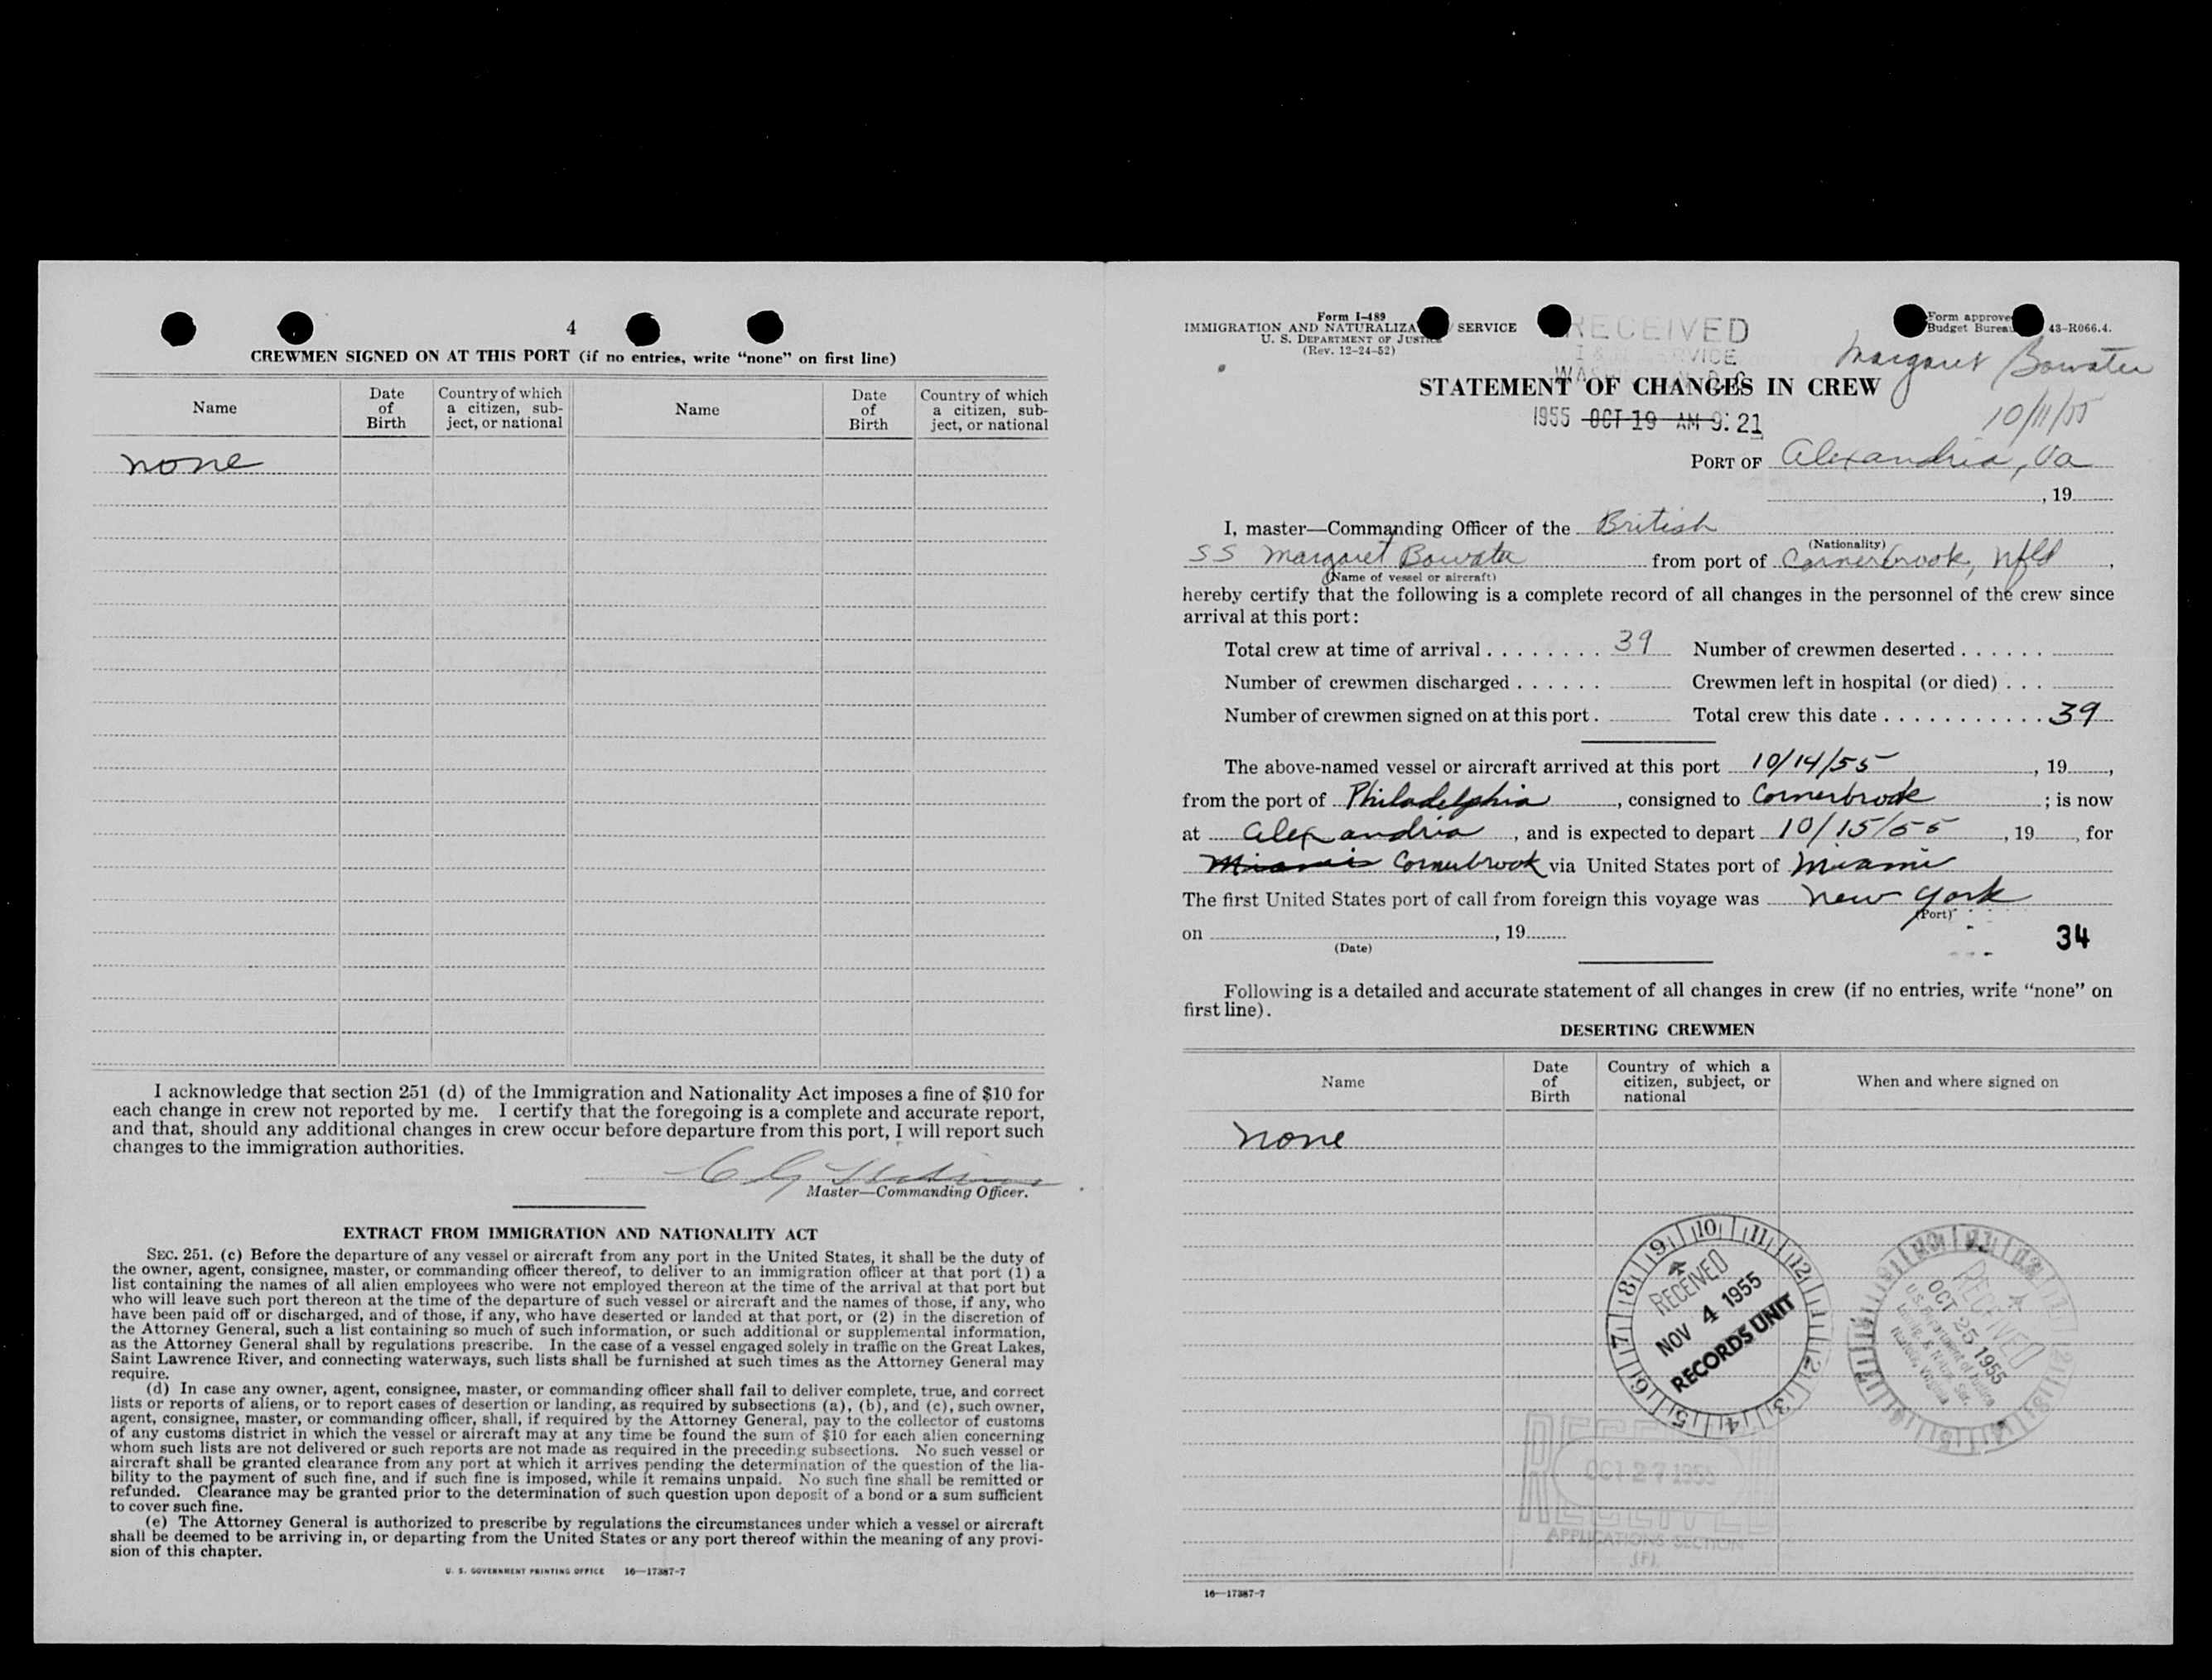 4
CREWMEN SIGNED ON AT THIS PORT (if no entries, write “none” on first line)
Name
Date of Birth
Country of which a citizen, sub-ject, or national
Name
Date of Birth
Country of which a citizen, sub-ject, or national
none
I acknowledge that section 251 (d) of the Immigration and Nationality Act imposes a fine of $10 for
each change in crew not reported by me. I certify that the foregoing is a complete and accurate report,
and that, should any additional changes in crew occur before departure from this port, I will report such
changes to the immigration authorities.
Master—Commanding Officer.
EXTRACT FROM IMMIGRATION AND NATIONALITY ACT
SEC. 251. (c) Before the departure of any vessel or aircraft from any port in the United States, it shall be the duty of
the owner, agent, consignee, master, or commanding officer thereof, to deliver to an immigration officer at that port (1) a
list containing the names of all alien employees who were not employed thereon at the time of the arrival at that port but
who will leave such port thereon at the time of the departure of such vessel or aircraft and the names of those, if any, who
have been paid off or discharged, and of those, if any, who have deserted or landed at that port, or (2) in the discretion of
the Attorney General, such a list containing so much of such information, or such additional or supplemental information,
as the Attorney General shall by regulations prescribe. In the case of a vessel engaged solely in traffic on the Great Lakes,
Saint Lawrence River, and connecting waterways, such lists shall be furnished at such times as the Attorney General may
require.
(d) In case any owner, agent, consignee, master, or commanding officer shall fail to deliver complete, true, and correct
lists or reports of aliens, or to report cases of desertion or landing, as required by subsections (a), (b), and (c), such owner,
agent, consignee, master, or commanding officer, shall, if required by the Attorney General, pay to the collector of customs
of any customs district in which the vessel or aircraft may at any time be found the sum of $10 for each alien concerning
whom such lists are not delivered or such reports are not made as required in the preceding subsections. No such vessel or
aircraft shall be granted clearance from any port at which it arrives pending the determination of the question of the lia-
bility to the payment of such fine, and if such fine is imposed, while it remains unpaid. No such fine shall be remitted or
refunded. Clearance may be granted prior to the determination of such question upon deposit of a bond or a sum sufficient
to cover such fine.
(e) The Attorney General is authorized to prescribe by regulations the circumstances under which a vessel or aircraft
shall be deemed to be arriving in, or departing from the United States or any port thereof within the meaning of any provi-
sion of this chapter.
U. S. GOVERNMENT PRINTING OFFICE 16—17387-7
Form I-489
IMMIGRATION AND NATURALIZA SERVICE
U. S. DEPARTMENT OF JUSTICE
(Rev. 12-24-52)
RECEIVED
Form approve
Budget Burea 43-R066.4.
Margaret Bowater
10/11/55
STATEMENT OF CHANGES IN CREW
1955 OCT 19 AM 9:21
PORT OF Alexandria, Va
, 19
I, master—Commanding Officer of the British
(Nationality)
SS Margaret Bowater from port of Cornerbrook, Nfld,
(Name of vessel or aircraft)
hereby certify that the following is a complete record of all changes in the personnel of the crew since
arrival at this port:
Total crew at time of arrival 39 Number of crewmen deserted
Number of crewmen discharged Crewmen left in hospital (or died)
Number of crewmen signed on at this port. Total crew this date 39
The above-named vessel or aircraft arrived at this port 10/14/55, 19,
from the port of Philadelphia, consigned to Cornerbrook; is now
at Alexandria, and is expected to depart 10/15/55, 19, for
Miami Cornerbrook via United States port of Miami
The first United States port of call from foreign this voyage was New York
(Port)
on , 19
(Date)
34
Following is a detailed and accurate statement of all changes in crew (if no entries, write “none” on
first line).
DESERTING CREWMEN
Name
Date of Birth
Country of which a citizen, subject, or national
When and where signed on
none
RECEIVED
NOV 4 1955
RECORDS UNIT
RECEIVED
OCT 25 1955
U.S. Department of Justice
Norfolk, Virginia
RECEIVED
OCT 27 1955
APPLICATIONS SECTION
(F)
16—17387-7